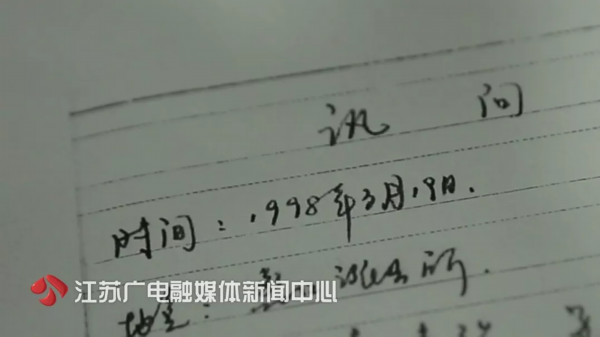 讯 问
时间：1998年3月19日.
地点： 派出所.
江苏广电融媒体新闻中心